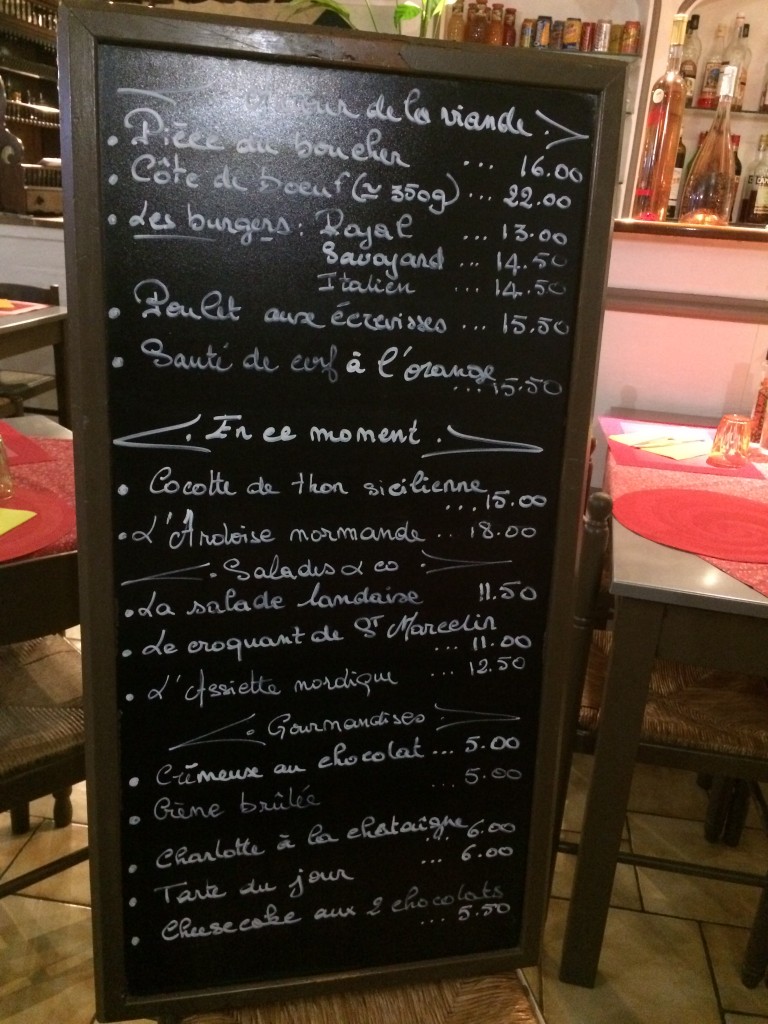 Autour de la viande.
• Pièce du boucher ... 16.00
• Côte de boeuf (≃ 350g) ... 22.00
• Les burgers: Royal ... 13.00
Savoyard ... 14.50
Italien ... 14.50
• Poulet aux écrevisses ... 15.50
• Sauté de cerf à l'orange
... 15.50
. En ce moment .
• Cocotte de thon sicilienne
... 15.00
• L'Ardoise normande ... 18.00
. Salades & co .
• La salade landaise 11.50
• Le croquant de St Marcelin
... 11.00
• L'Assiette nordique ... 12.50
. Gourmandises .
• Crémeux au chocolat ... 5.00
• Crème brûlée ... 5.00
• Charlotte à la chataîgne ... 6.00
• Tarte du jour ... 6.00
• Cheesecake aux 2 chocolats
... 5.50